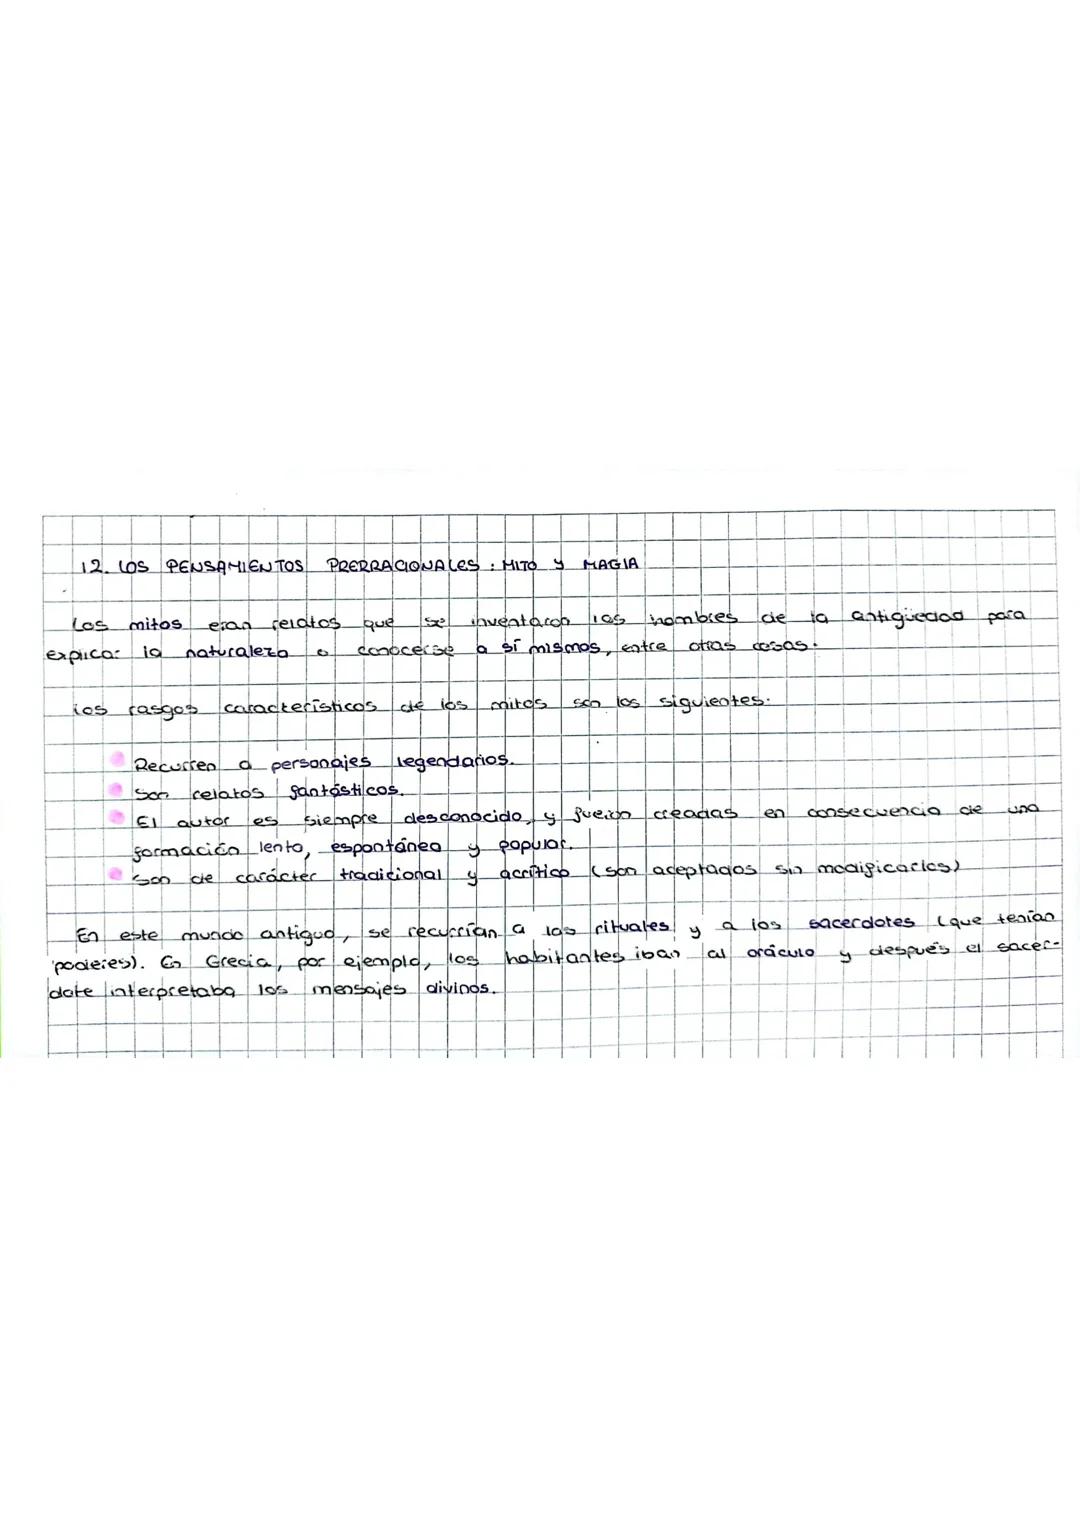 12. LOS PENSAMIENTOS PRERRACIONALES: MITO Y MAGIA
Los mitos eran relatos que se inventaron los hombres de la antigüedad para
explicar la naturaleza o conocerse a sí mismos, entre otras cosas.
Los rasgos característicos de los mitos son los siguientes:
Recurren a personajes legendarios.
Son relatos fantásticos.
El autor es siempre desconocido, y fueron creadas en consecuencia de una
formación lento, espontáneo y popular.
Son de carácter tradicional y acrítico (son aceptados sin modificarlos)
En este mundo antiguo, se recurrían a los rituales y a los sacerdotes (que tenían
poderes). En Grecia, por ejemplo, los habitantes iban al oráculo y después el sacer-
dote interpretaba los mensajes divinos.